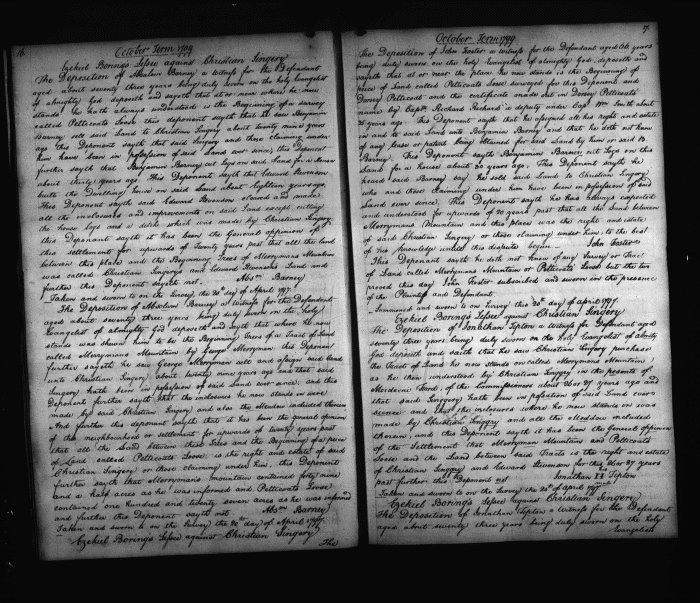 16.
October Term 1799
Ezekiel Boring's Lessee against Christian Gingery
The Deposition of Absalom Barney a witness for the Defendant
aged about seventy three years being duly sworn on the holy Evangelist
of almighty God deposeth and sayeth that at or near where he now
stands he hath always understood is the Beginning of a survey
called Petticoats Loose this deponent sayth that he saw Benjamin
Barney sell said Land to Christian Gingery about twenty nine years
ago this Deponent sayth that said Gingery and those claiming under
him have been in possession of said Land ever since, this Deponent
further sayeth that Benjamin Barney cut logs on said Land for a House
about thirty years ago. This Deponent sayth that Edward Stevenson
built the Dwelling house on said Land about Eighteen years ago,
This Deponent sayth said Edward Stevenson cleared and made
all the inclosures and improvements on said Land except cutting
the house logs and a ditch which was made by Christian Gingery
this Deponant sayth it has been the general opinion of
this settlement for upwards of Twenty years past that all the land
between this place and the Beginning Trees of Merrymans Mountain
was called Christian Gingerys and Edward Stevensons Land and
further this Deponent sayeth not. Abs.m Barney
Taken and sworn to on the Survey, the 20th day of April 1797.
The Deposition of Absolem Barney a witness for the Defendant
aged about seventy three years being duly sworn on the holy
Evangelist of almighty God deposeth and sayth that where he now
stands was shewn him to be the Beginning Trees of a Tract of Land
called Merrymans Mountain by George Merryman, this Deponent
further sayeth he saw George Merryman sell and assign said land
unto Christian Gingery about twenty nine years ago and that said
Gingery hath been in possession of said Land ever since, and this
Deponent further sayth that the inclosures he now stands in were
made by said Christian Gingery and also the Meadow included therein
And further this deponent sayeth that it has been the general opinion
of this neighbourhood or settlement for upwards of twenty years past
that all the Land between these Trees and the Beginning of a piece
of Land called Petticoats Loose, is the right and estate of said
Christian Gingery or those claiming under him, this Deponent
further sayth that Merryman's Mountain contained forty nine
and a half acres as he was informed and Petticoats Loose
contained one hundred and twenty seven acres as he was informed
and further this Deponent sayth not. Abs.m Barney
Taken and sworn to on the Survey the 20th day of April 1797.
Ezekiel Boring's Lessee against Christian Gingery
The
October Term 1799.
The Deposition of John Foster a witness for the Defendant aged 66 years
being duly sworn on the holy Evangelist of almighty God, deposeth and
sayeth that at or near the place he now stands is the Beginning of
piece of Land called Petticoats Loose surveyed for this Deponent and
Dorsey Petticoat and the certificate made out in Dorsey Petticoats
name by Capt.n Richard Richards a deputy under Capt. Wm. Smith about
years ago. This Deponent sayth that he assigned all his right and estate
in and to said Land unto Benjamin Barney and that he doth not know
of any lease or patent being obtained for said Land by him or said B
Barney. This Deponent sayth Benjamin Barney cut logs on this
Land for a house about 30 years ago. This Deponent sayth he
heard said Barney say he sold said Land to Christian Gingery
who and those claiming under him have been in possession of said
Land ever since, This Deponent sayth he has always expected
and understood for upwards of 20 years past that all the Land between
Merrymans Mountain and this place was the right and estate
of said Christian Gingery or those claiming under him, to the best
of his knowledge untill this dispute began. John Foster
This Deponent sayth he doth not know of any Survey or Tract
of Land called Merrymans Mountain or Petticoats Loose but the two
proved this day John Foster subscribed and sworn in the presence
of the Plaintiff and Defendant.
and sworn to on Survey this 20th day of April 1797.
Ezekiel Boring's Lessee against Christian Gingery
The Deposition of Jonathan Tipton a Witness for Defendant aged
seventy three years being duly sworn on the holy Evangelist of almity
God deposeth and saith that he saw Christian Gingery purchase
the Tract of Land he now stands on called Merrymans Mountain
as he then understood by Christian Gingery in the presents of
Mordecai Ford, of the Commissioners about 26 or 27 years ago and
that said Gingery hath been in possession of said Land ever
sience and that the inclosures where he now stands in was
made by Christian Gingery and all the Meddow included
therein, and this Deponent sayth it has been the General oppinion
of the Settlement that Merryman Mountain and Petticoats
Loose and the Land between said Tracts is the right and estate
of Christian Gingery and Edward Stevenson for this 26 or 27 years
past further this Deponent not Jonathan Tipton
Taken and sworn to on the Survey the 20th of april 1797.
Ezekiel Boring's Lessee against Christian Gingery
The Deposition of Jonathan Tipton a Witness for the Defendant
aged about seventy three years being duly sworn on the holy
Evangelist